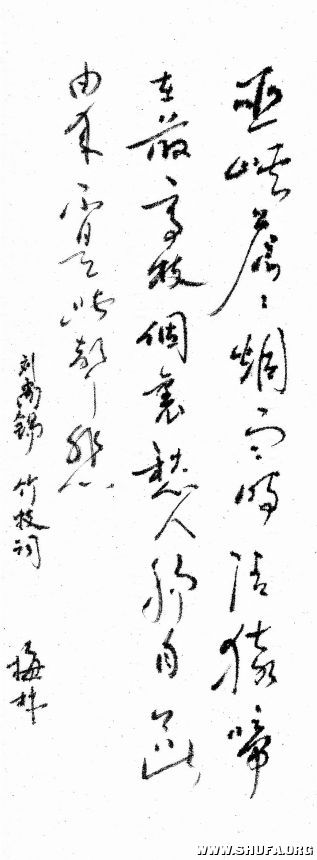 巫峡苍〻烟雨时清猿啼
在最高枝個裏愁人肠自断
由来不是此声悲
刘禹锡 竹枝词 梅林
WWW.SHUFA.ORG